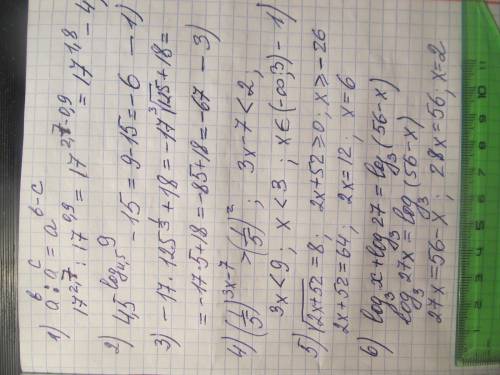 1) a^b : a^c = a^(b-c)
17^2,7 : 17^0,9 = 17^(2,7-0,9) = 17^1,8 - 4)
2) 4,5^(log_4,5 9) - 15 = 9 - 15 = -6 - 1)
3) -17 · 125^(1/3) + 18 = -17 ∛125 + 18 =
= -17·5 + 18 = -85 + 18 = -67 - 3)
4) (1/5)^(3x-7) > (1/5)^2 ; 3x - 7 < 2,
3x < 9, x < 3 ; x ∈ (-∞; 3) - 1)
5) √(2x+52) = 8; 2x+52 ≥ 0; x ≥ -26
2x+52 = 64; 2x = 12; x = 6
6) log_3 x + log_3 27 = log_3 (56-x)
log_3 27x = log_3 (56-x)
27x = 56-x ; 28x = 56; x = 2
5 6 7 8 9 10 11